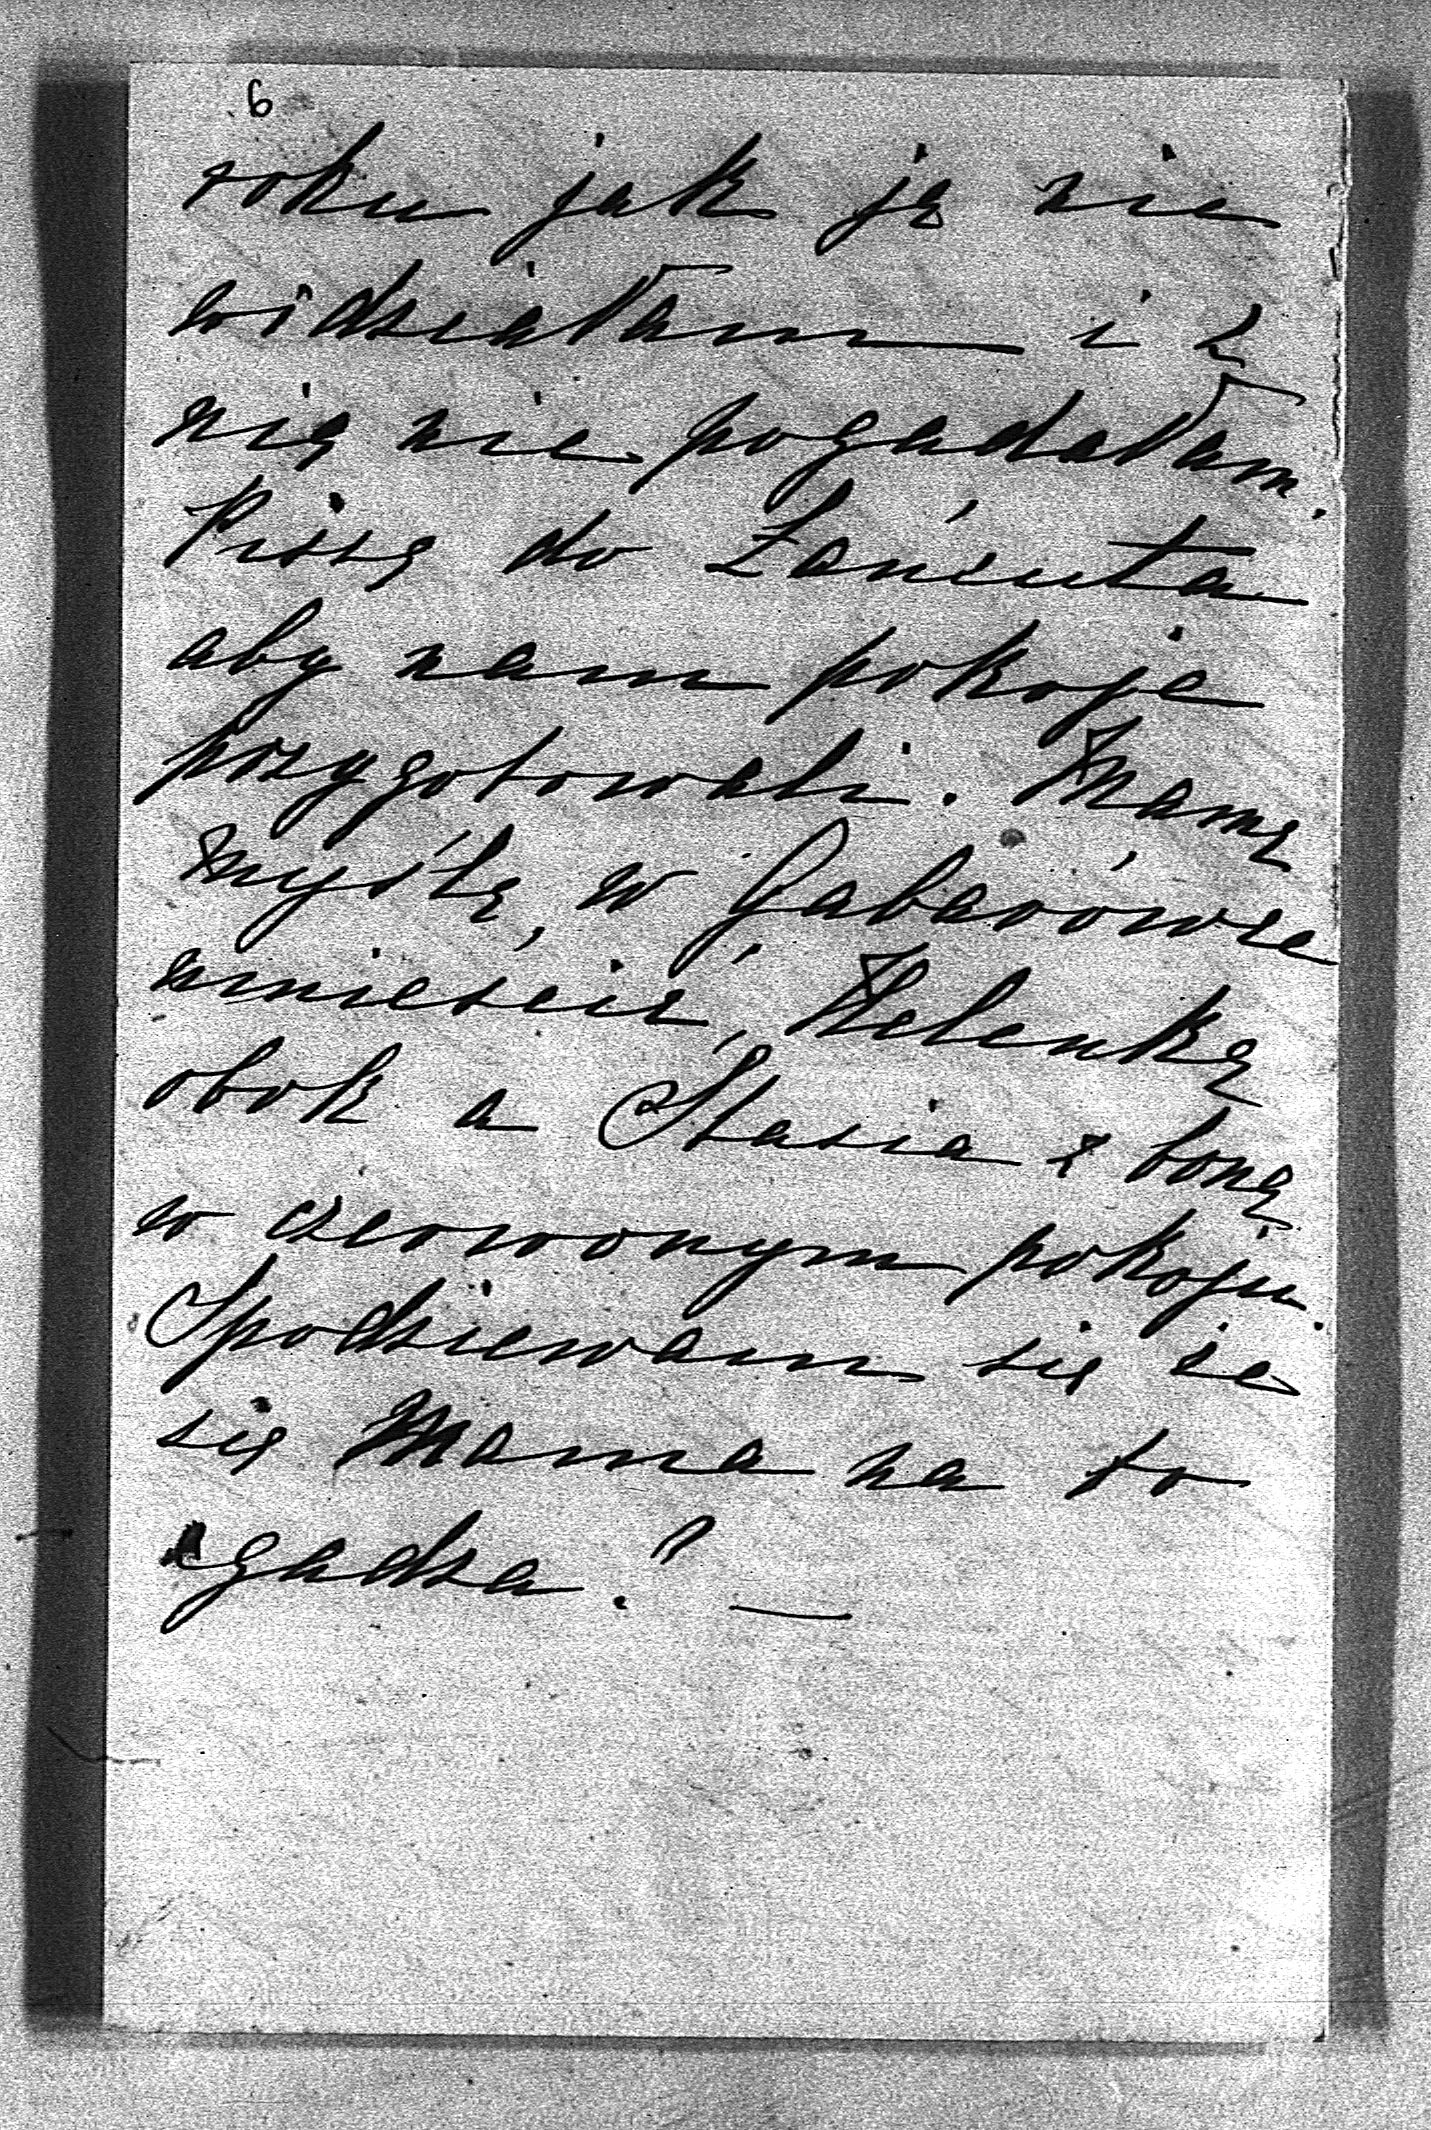 6
roku jak ją nie
widziałam i z
nią nie pogadałam.
Piszę do Łańcuta
aby nam pokoje
przygotowali. Mamę
myślę, w Gabarówce
umieścić, Helenkę
obok a Stasia z boną
w czerwonym pokoju.
Spodziewam się że
się Mama na to
zgadza? —